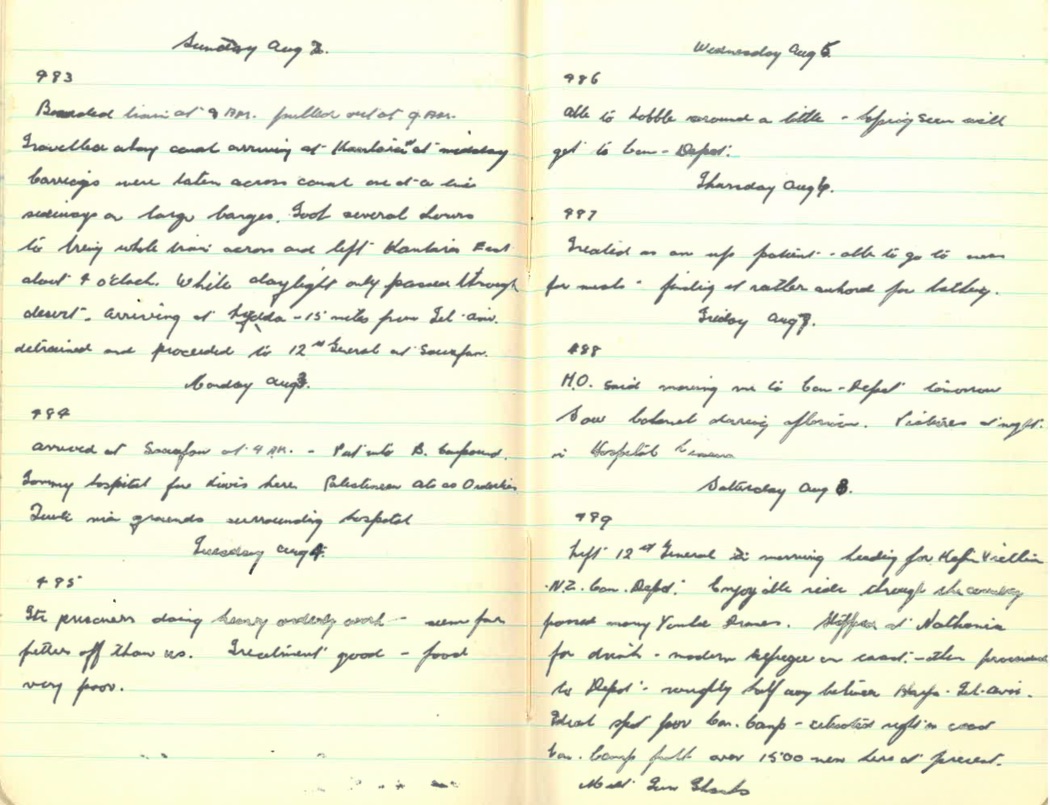 Sunday Aug 2.
993
Boarded train at 8 AM. pulled out at 9 AM.
Travelled along canal arriving at Kantara at midday
Carriages were taken across canal one at a time
sideways on large barges. Took several hours
to bring whole train across and left Kantara East
about 4 o'clock. While daylight only passed through
desert. Arriving at Lydda - 15 miles from Tel-aviv.
detrained and proceeded to 12th General at Sarafan.
Monday Aug 3.
994
arrived at Sarafan at 9 AM. - Put into B. Compound.
Tommy hospital for Kiwis here Palestinean ats as Orderlies
grounds surrounding hospital
Tuesday Aug 4.
995
Ite prisoners doing heavy orderly work - seem far
better off than us. Treatment good - food
very poor.
Wednesday Aug 5
996
able to hobble around a little - hoping soon will
get to Con-Depot.
Thursday Aug 6.
997
Treated as an up patient - able to go to mess
for meals - finding it rather awkward
Friday Aug 7.
998
M.O. said moving me to Con-Depot tomorrow
Saw during afternoon. Pictures at night.
in Hospital Cinema
Saturday Aug 8.
999
Left 12th General in morning heading for Kefir Vitkin
N.Z. Con. Depot. Enjoyable ride through the country
passed many Yankee Stopped at Nathania
for drink - modern on coast - then proceeded
to Depot - roughly half way between Haifa - Tel-aviv.
Ideal spot for Con. Camp - situated right on coast
Con. Camp full over 1500 men here at present.